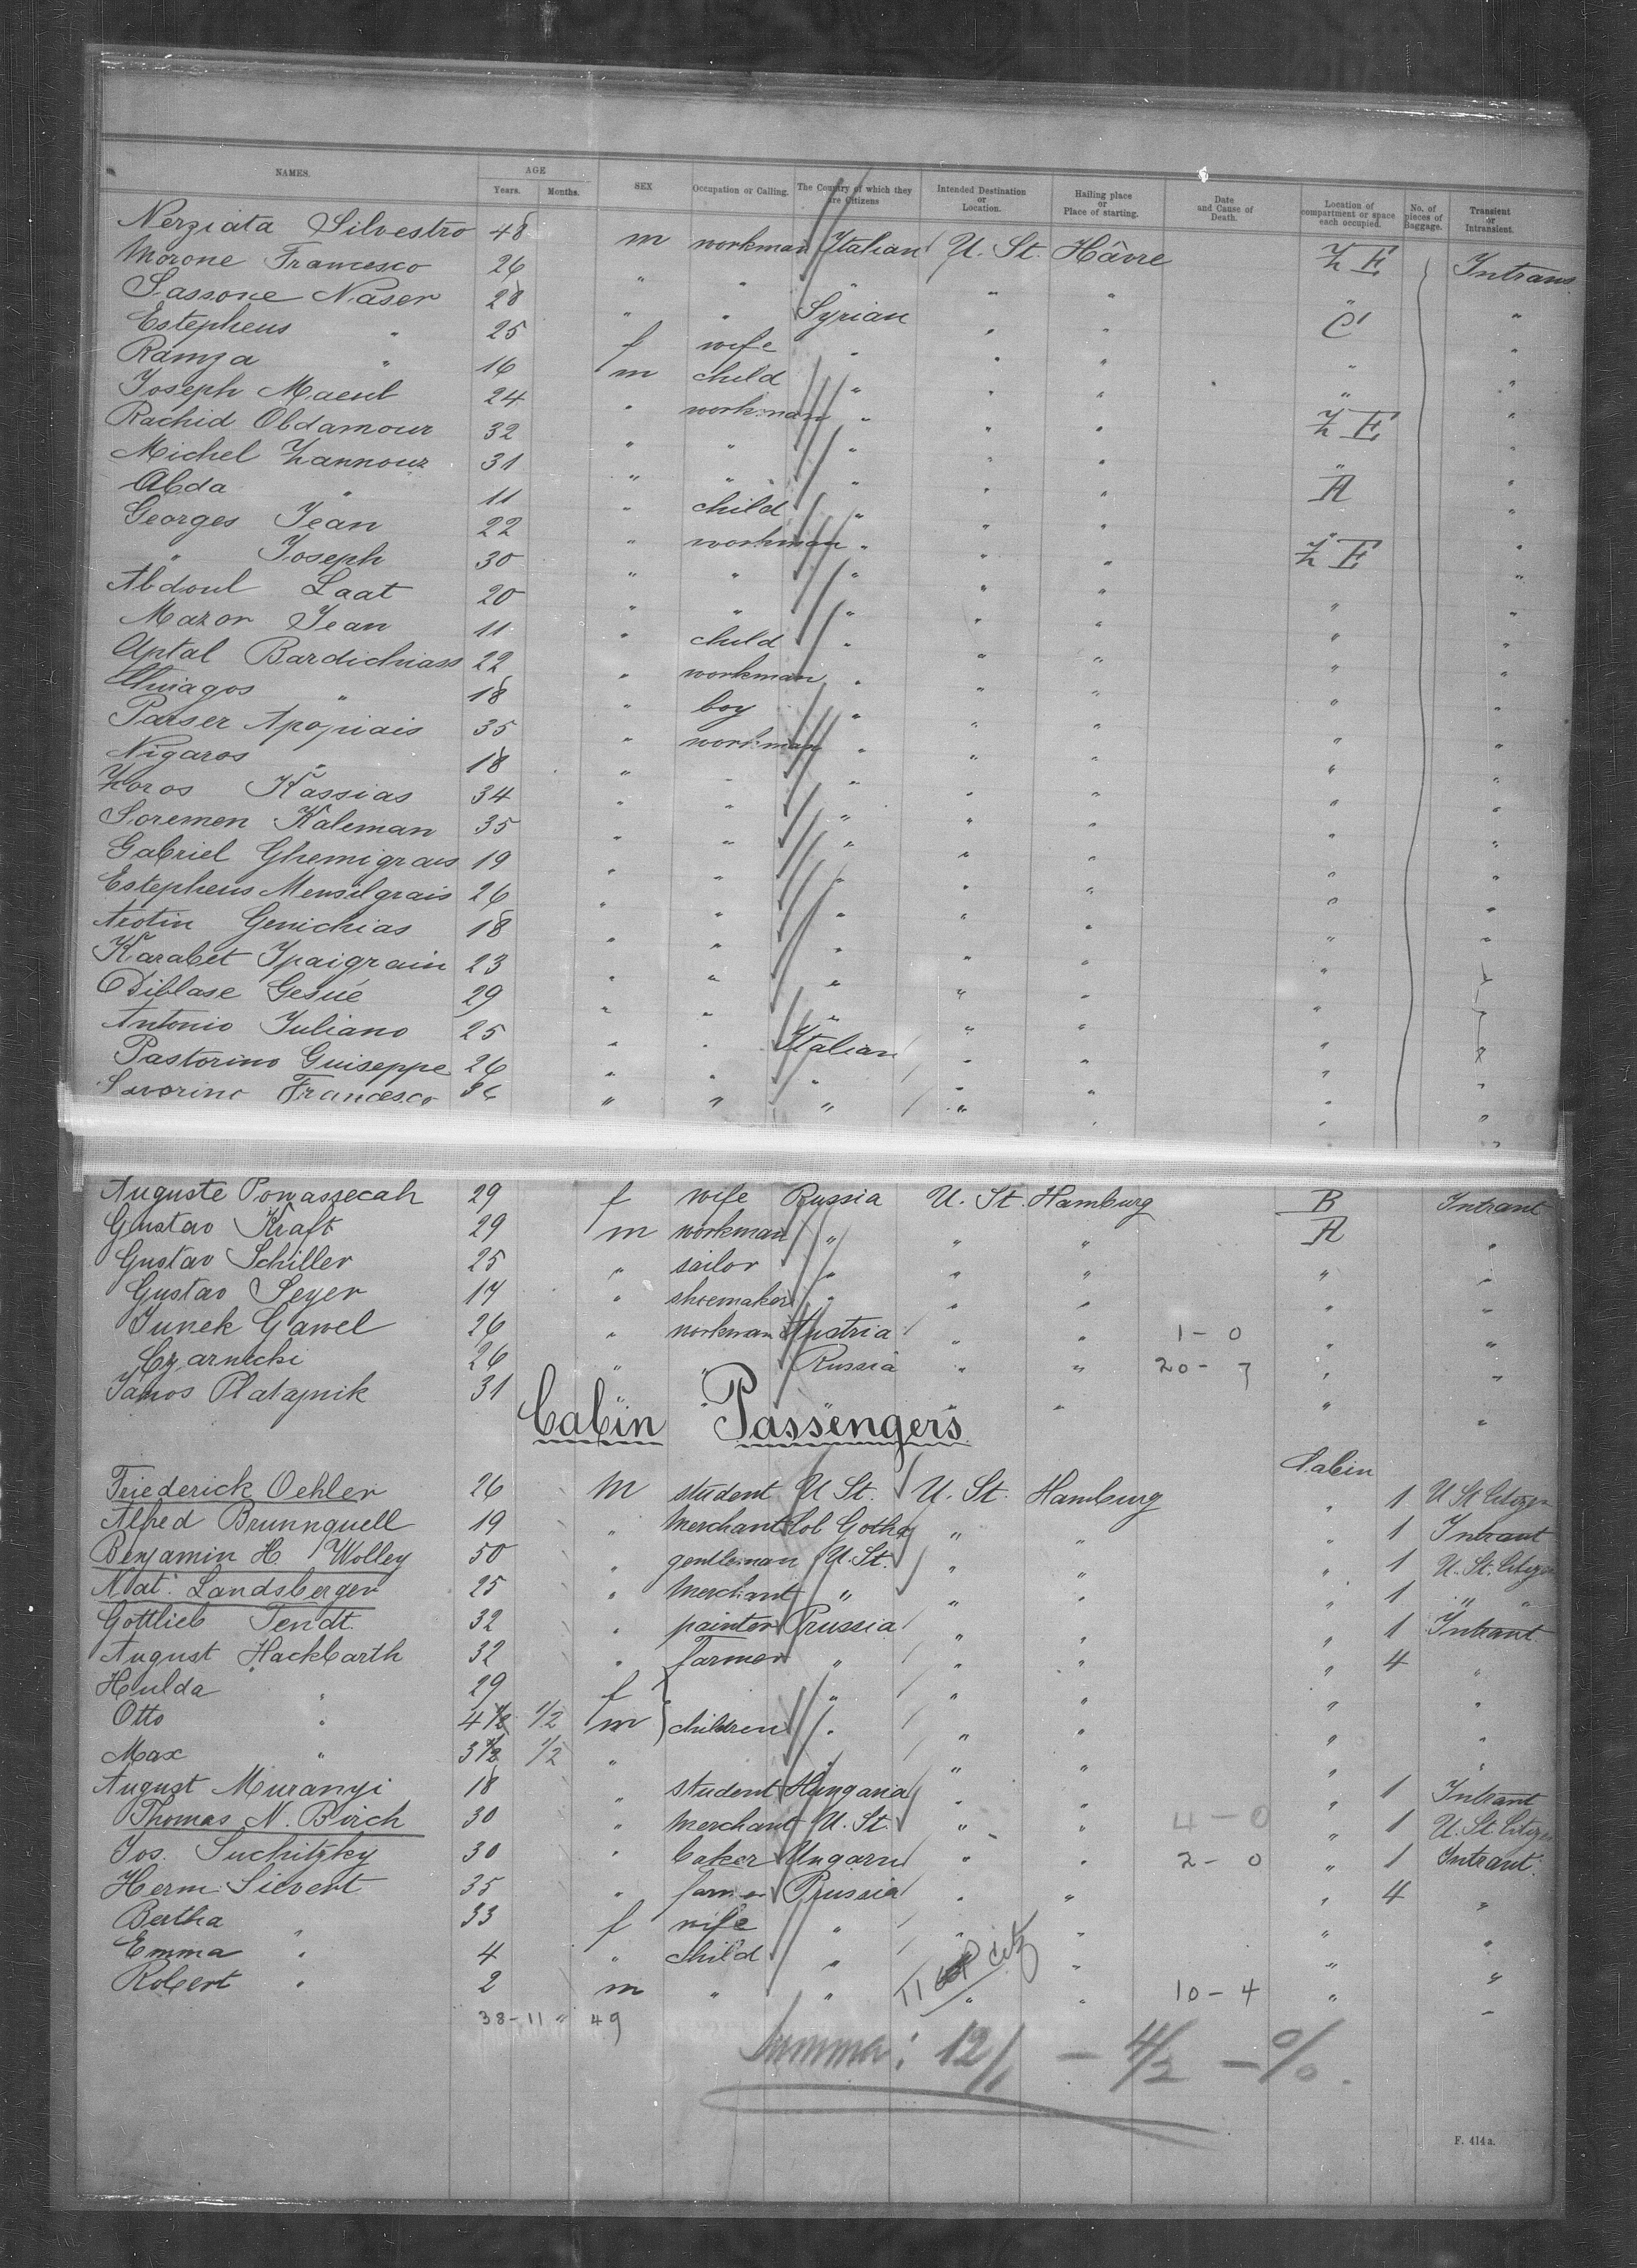 NAMES. AGE Years. Months. SEX Occupation or Calling. The Country of which they are Citizens Intended Destination or Location. Hailing place or Place of starting. Date and Cause of Death. Location of compartment or space each occupied. No. of pieces of Baggage. Transient or Intransient.
Nerziata Silvestro 48 m workman Italian U. St. Hâvre Z E Intrans.
Morone Francesco 26 " " " " " " "
Sassone Naser 28 " " Syrian " " C "
Estepheus " 25 f wife " " " " "
Ramza " 16 m child " " " " "
Joseph Maeul 24 " workman " " " Z E "
Rachid Obdamour 32 " " " " " " "
Michel Zannour 31 " " " " " A "
Abda " 11 " child " " " " "
Georges Jean 22 " workman " " " Z E "
" Joseph 30 " " " " " " "
Abdoul Laat 20 " " " " " " "
Mazor Jean 11 " child " " " " "
Aptal Bardichiass 22 " workman " " " " "
" 18 " boy " " " " "
Parser Apopiais 35 " workman " " " " "
Nigaros " 18 " " " " " " "
Zoros Kassias 34 " " " " " " "
Soremen Kaleman 35 " " " " " " "
Gabriel Ghemigrais 19 " " " " " " "
Estepheus Mensilgrais 26 " " " " " " "
Arotin Genichias 18 " " " " " " "
Karabet Ipaigrain 23 " " " " " "
Diblase Gesué 29 " " " " " "
Antonio Juliano 25 " " Italian " " "
Pastorino Guiseppe 26 " " " " " " "
Francesco 36 " " " " " " "
Auguste Powassecah 29 f wife Russia U. St. Hamburg B Intrant
Gustav Kraft 29 m workman " " " A "
Gustav Schiller 25 " sailor " " " " "
Gustav Seyer 17 " shoemaker " " " " "
Junek Gawel 26 " workman Austria " " 1 - 0 " "
Czarnecki 26 " " Russia " " 20 - 7 " "
Janos Platajnik 31 " " " " " " "
Cabin Passengers
Cabin
Friederick Oehler 26 M student U St. U. St. Hamburg " 1 U St Citizen
Alfred Brunnquell 19 " Merchant Cob Gotha " " " 1 Intrant
Benjamin H Wolley 50 " gentleman U. St. " " " 1 U. St. Citizen
Nat. Landsberger 25 " Merchant " " " " 1 " "
Gottlieb Tendt. 32 " painter Prussia " " " 1 Intrant
August Hackbarth 32 " farmer " " " " 4 "
Hulda " 29 f " " " " "
Otto " 4 1/2 1/2 m } children " " " " "
Max " 3 1/2 1/2 " " " " " "
August Muranyi 18 " student Hungaria " " " 1 Intrant
Thomas N. Birch 30 " Merchant U. St. " " 4 - 0 " 1 U. St. Citizen
Jos. Suchitzky 30 " baker Ungarn " " 2 - 0 " 1 Intrant
Herm. Sievert 35 " farmer Prussia " " " 4 "
Bertha " 33 f wife " " " " "
Emma " 4 " child " " " " "
Robert " 2 m " " " " 10 - 4 " "
38 - 11 " 49
Summa: 12/1 - 4/2 - %.
F. 414 a.